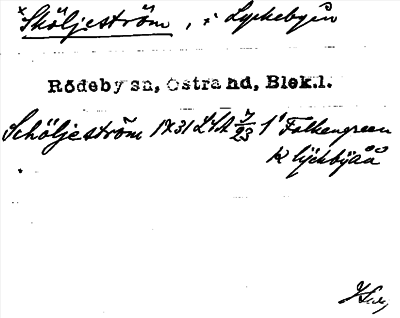 *Sköljeström, i Lyckebyån
Rödeby sn, Östra hd, Blek.l.
Schöljeström 1731 LSA 7/23 1' Falkengreen
K lyckbyåå